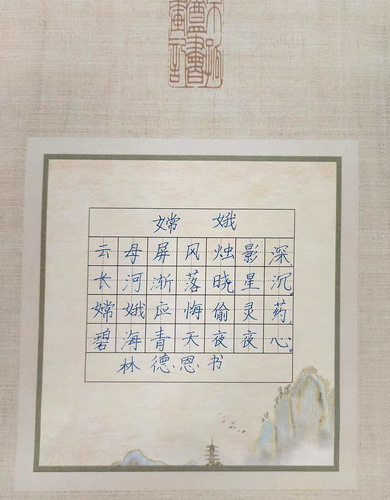 嫦娥
云母屏风烛影深,
长河渐落晓星沉。
嫦娥应悔偷灵药,
碧海青天夜夜心。
林德恩书